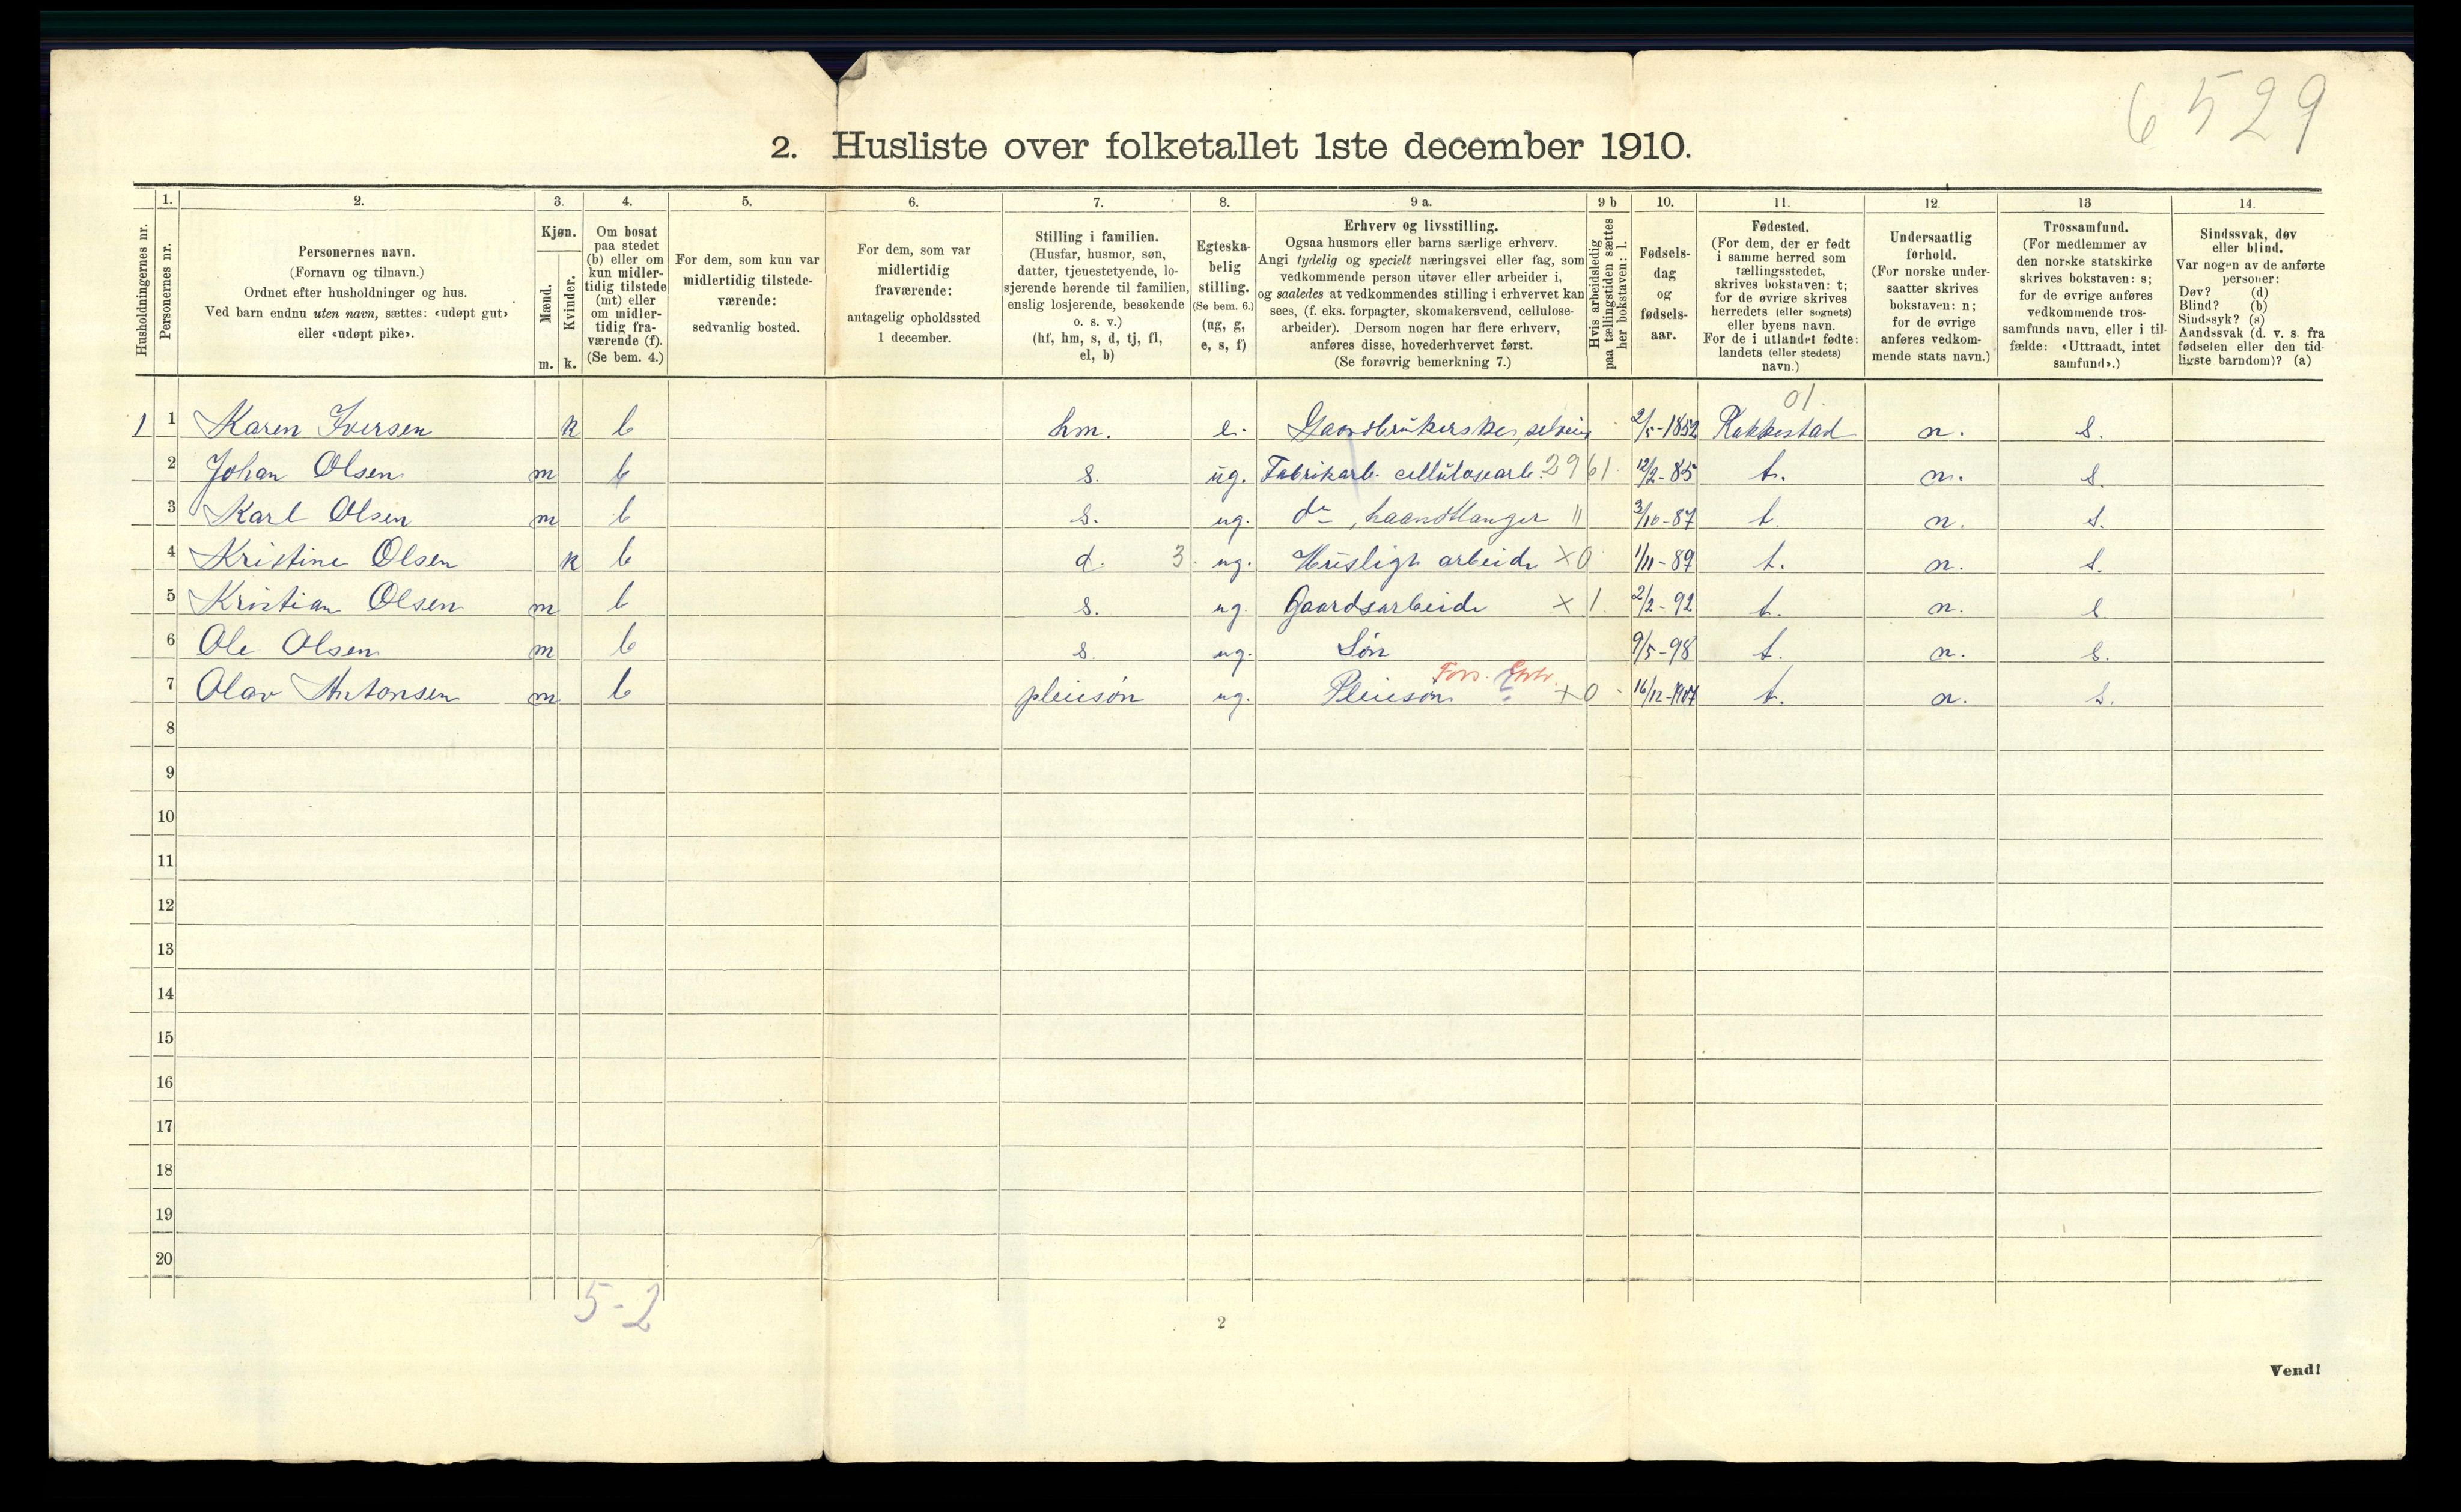 6529
2. Husliste over folketallet 1ste december 1910.
1. 2. 3. 4. 5. 6. 7. 8. 9 a. 9 b 10. 11. 12. 13 14.
Husholdningernes nr.
Personernes nr.
Personernes navn.
(Fornavn og tilnavn.)
Ordnet efter husholdninger og hus.
Ved barn endnu uten navn, sættes: «udøpt gut»
eller «udøpt pike».
Kjøn.
Mænd.
m.
Kvinder.
k.
Om bosat
paa stedet
(b) eller om
kun midler-
tidig tilstede
(mt) eller
om midler-
tidig fra-
værende (f).
(Se bem. 4.)
For dem, som kun var
midlertidig tilstede-
værende:
sedvanlig bosted.
For dem, som var
midlertidig
fraværende:
antagelig opholdssted
1 december.
Stilling i familien.
(Husfar, husmor, søn,
datter, tjenestetyende, lo-
sjerende hørende til familien,
enslig losjerende, besøkende
o. s. v.)
(hf, hm, s, d, tj, fl,
el, b)
Egteska-
belig
stilling.
(Se bem. 6.)
(ug, g,
e, s, f)
Erhverv og livsstilling.
Ogsaa husmors eller barns særlige erhverv.
Angi tydelig og specielt næringsvei eller fag, som
vedkommende person utøver eller arbeider i,
og saaledes at vedkommendes stilling i erhvervet kan
sees, (f. eks. forpagter, skomakersvend, cellulose-
arbeider). Dersom nogen har flere erhverv,
anføres disse, hovederhvervet først.
(Se forøvrig bemerkning 7.)
Hvis arbeidsledig
paa tællingstiden sættes
her bokstaven: l.
Fødsels-
dag
og
fødsels-
aar.
Fødested.
(For dem, der er født
i samme herred som
tællingsstedet,
skrives bokstaven: t;
for de øvrige skrives
herredets (eller sognets)
eller byens navn.
For de i utlandet fødte:
landets (eller stedets)
navn.)
Undersaatlig
forhold.
(For norske under-
saatter skrives
bokstaven: n;
for de øvrige
anføres vedkom-
mende stats navn.)
Trossamfund.
(For medlemmer av
den norske statskirke
skrives bokstaven: s;
for de øvrige anføres
vedkommende tros-
samfunds navn, eller i til-
fælde: «Uttraadt, intet
samfund».)
Sindssvak, døv
eller blind.
Var nogen av de anførte
personer:
Døv? (d)
Blind? (b)
Sindssyk? (s)
Aandssvak (d. v. s. fra
fødselen eller den tid-
ligste barndom)? (a)
01.
1 1 Karen Iversen k b hm. e. Gaardbrukerske, selveier 2/5-1852 Rakkestad n. s.
2 Johan Olsen m b s. ug. Fabrikarb. cellulosearb. 2961 12/2-85 t. n. s.
3 Karl Olsen m b s. ug. do, haandlanger " 3/10-87 t. n. s.
4 Kristine Olsen k b d. 3 ug. Husligt arbeide x0 1/11-89 t. n. s.
5 Kristian Olsen m b s. ug Gaardsarbeide x 1. 2/2-92 t. n. s
6 Ole Olsen m b s. ug. Søn 9/5-98 t. n. s.
Fors.
7 Olav Antonsen m b pleiesøn ug. Pleiesøn x0 16/12-1907 t. n. s.
8
9
10
11
12
13
14
15
16
17
18
19
20
5-2
2
Vend!